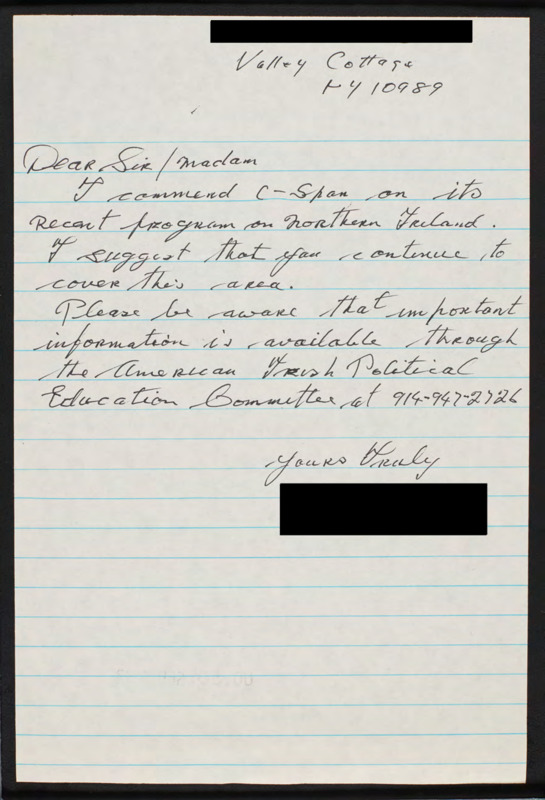 Valley Cottage
NY 10989
Dear Sir/Madam
I commend C-Span on its
recent program on Northern Ireland.
I suggest that you continue to
cover this area.
Please be aware that important
information is available through
the American Irish Political
Education Committee at 914-947-2726
Yours Truly